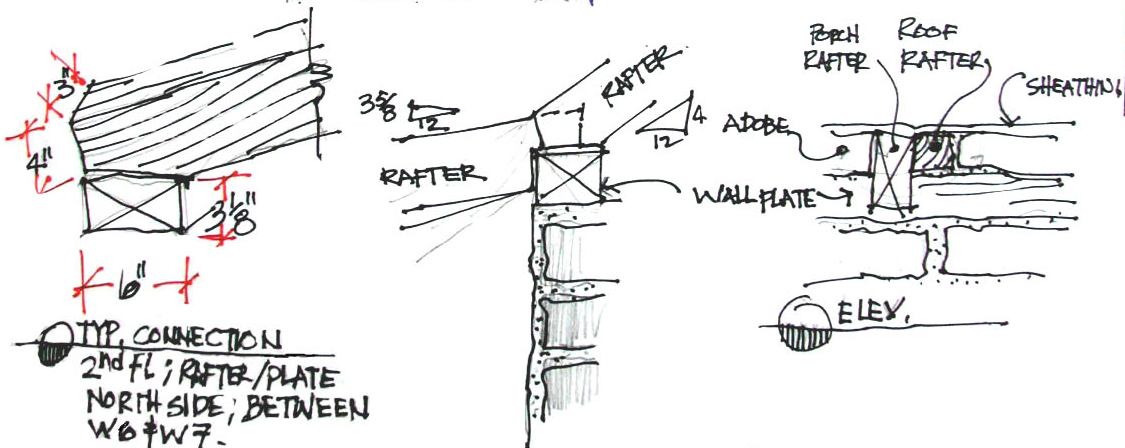 3"
4"
3 1/8"
6"
TYP. CONNECTION
2nd FL; RAFTER/PLATE
NORTH SIDE; BETWEEN
W6 & W7.
3 5/8
12
RAFTER
RAFTER
4
12
PORCH
RAFTER
ROOF
RAFTER
SHEATHING
ADOBE
WALL PLATE
ELEV.